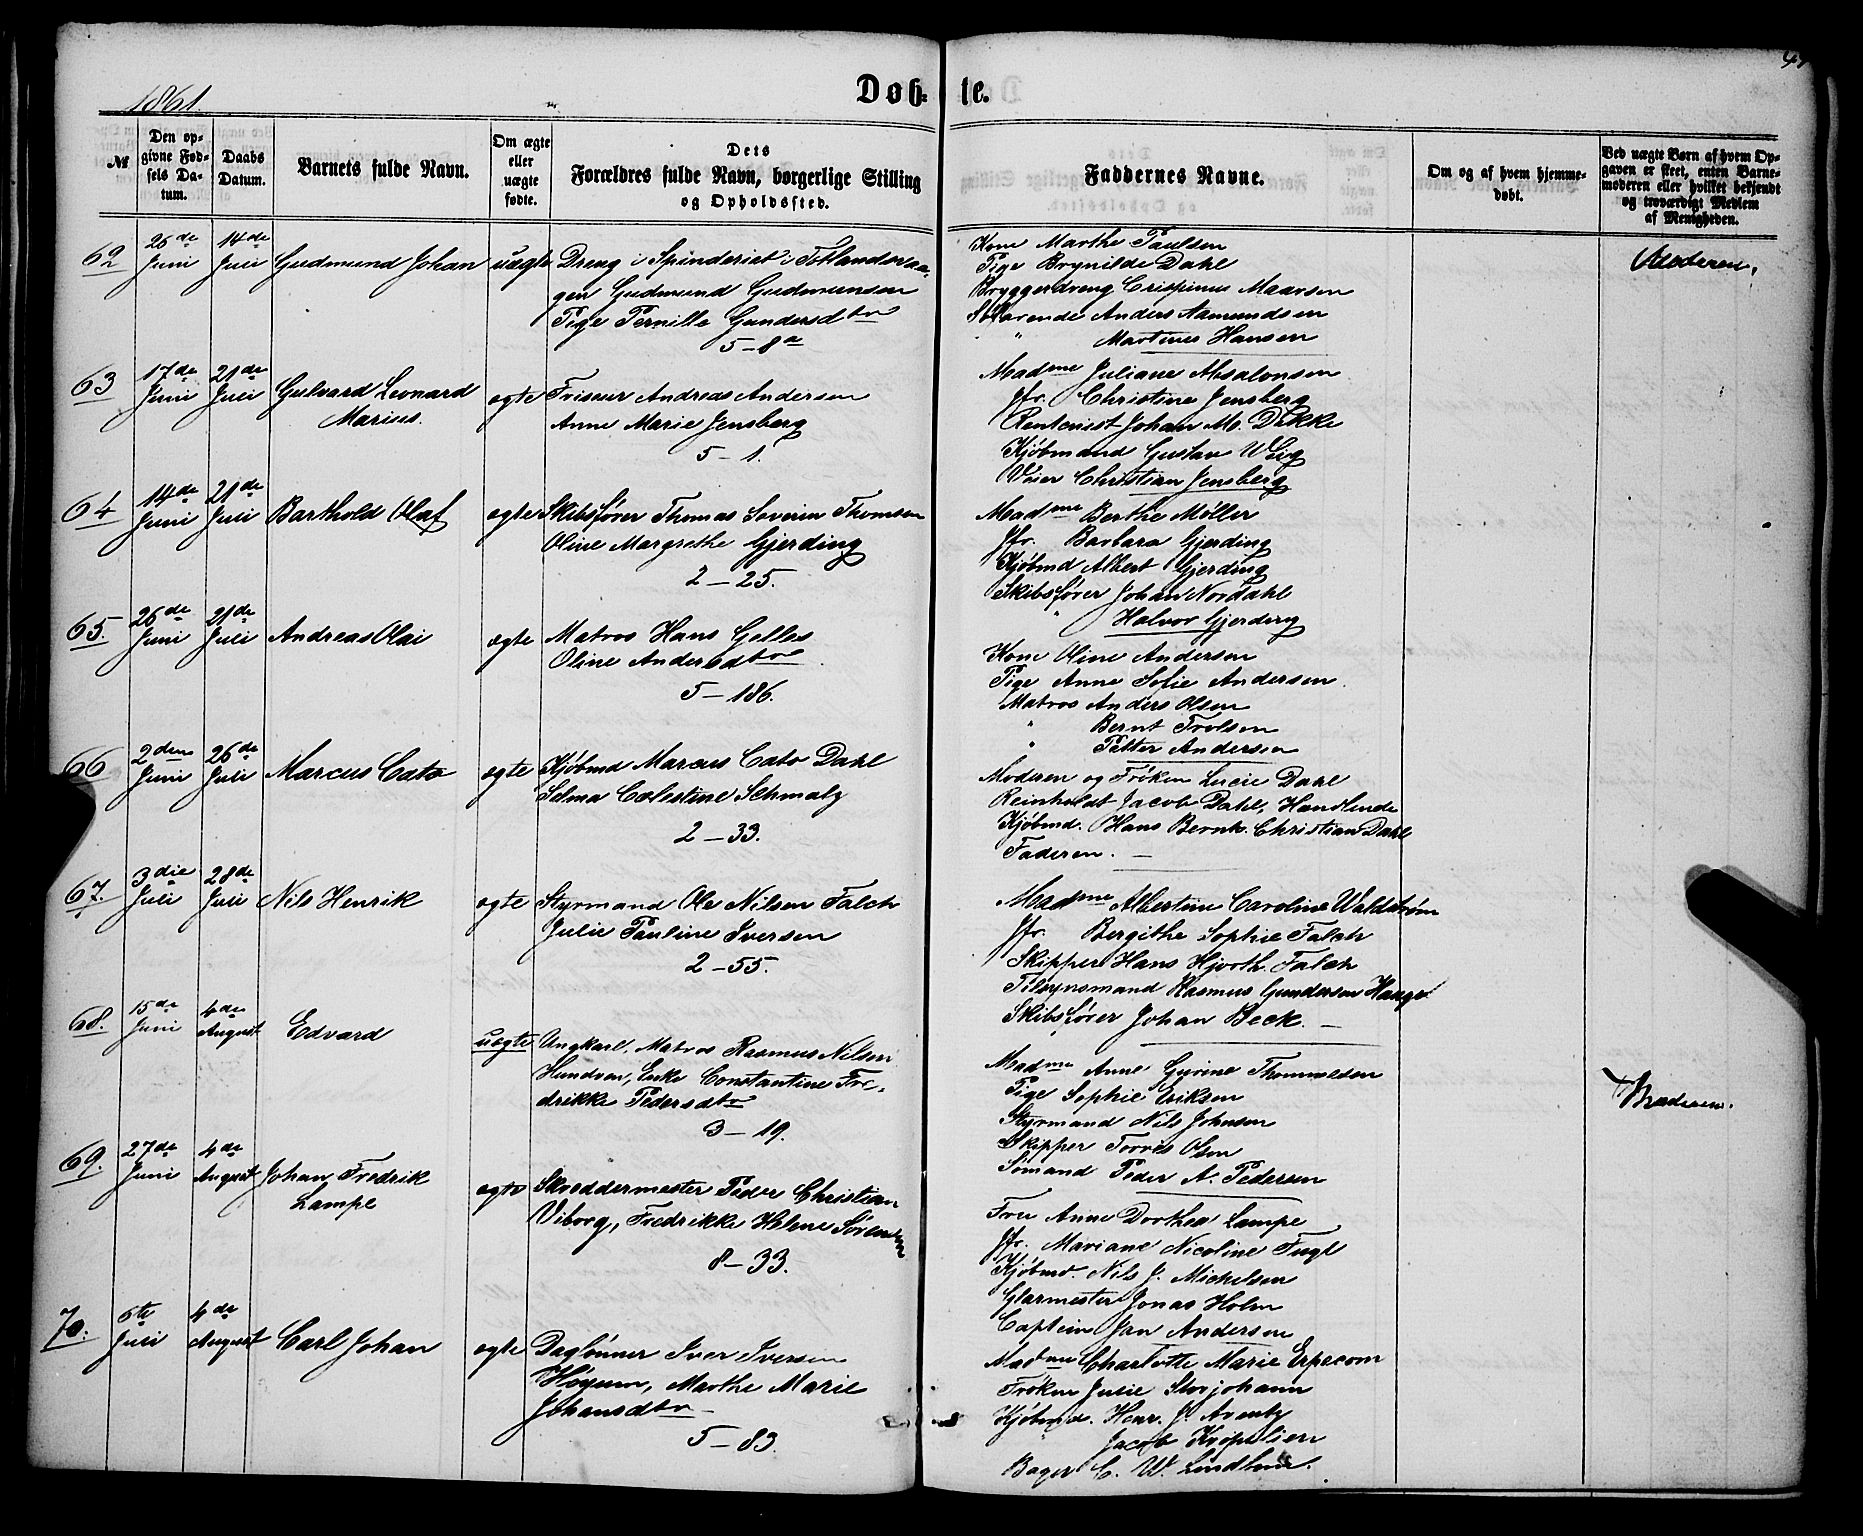 1861.
Døb-
te.
№
Den op-
givne Fød-
sels Da-
tum.
Daabs
Datum.
Barnets fulde Navn.
Om ægte
eller
uægte
fødte.
Dets
Forældres fulde Navn, borgerlige Stilling
og Opholdssted.
Faddernes Navne.
Om og af hvem hjemme-
døbt.
Ved uægte Børn af hvem Op-
gaven er skeet, enten Barne-
moderen eller hvilket bekjendt
og troværdigt Medlem
af Menigheden.
62
26de
Juni
14de
Juli
Gudmund Johan
uægte
Dreng i Spinderiet i
Gudmund Gudmunsen
Pige Pernille Gundersdtr
5-8a
Kone Marthe Paulsen
Pige Brynilde Dahl
Bryggerdreng Crispinus Maarsen
Anders Aamundsen
" Martines Hansen
Moderen.
63
17de
Juni
21de
Juli
Gulvard Leonard
Marius.
ægte
Friseur Andreas Andersen
Anne Marie Jensberg
5-1.
Madme Juliane Absalonsen
Jfr. Christine Jensberg
Johan M. Dekke
Kjøbmand Gustav
Christian Jensberg
64
14de
Juni
21de
Juli
Barthold Olaf
ægte
Skibsfører Thomas Severin Thomsen
Oline Margrethe Gjerding
2-25.
Madme Berthe Møller
Jfr. Barbara Gjerding
Kjøbmd Albert Gjerding
Skibsfører Johan Nordahl
" Halvor Gjerding
65.
26de
Juni
21de
Juli
Andreas Olai
ægte
Matros Hans Gelles
Oline Andersdtr
5-186.
Kone Oline Andersen
Pige Anne Sofie Andersen.
Matros Anders Olsen
" Bernt Trolsen
" Petter Andersen
66
2den
Juni
26de
Juli
Marcus Cato
ægte
Kjøbmd Marcus Cato Dahl
Selma Cælestine Schmalz
2-33.
Moderen og Frøken Lucie Dahl
Reinholdt Jacob Dahl, Handlende
Kjøbmd. Hans Bernh. Christian Dahl
Faderen.
67.
3die
Juli
28de
Juli
Nils Henrik
ægte
Styrmand Ole Nilsen Falch
Julie Pauline Iversen
2-55.
Madme Albertine Caroline Waldstrøm
Jfr. Bergithe Sophie Falch
Skipper Hans Hjorth Falch
Tilsynsmand Rasmus Gundersen Hauge
Skibsfører Johan Beck.
68.
15de
Juni
4de
August
Edvard
uægte
Ungkarl, Matros Rasmus Nilsen
Hundven, Enke Constantine Fre-
drikke Pedersdtr
3-19.
Madme Anne Gurine Thommesen
Pige Sophie Eriksen
Styrmand Nils Johnsen
Skipper Torres Olsen
Sømand Peder A. Pedersen
Moderen.
69.
27de
Juni
4de
August
Johan Fredrik
Lampe
ægte
Skreddermester Peder Christian
Viborg, Fredrikke Helene Sørensen
8-33.
Frue Anne Dorthea Lampe
Jfr. Mariane Nicoline Fugl
Kjøbmd. Nils J. Michelsen
Glarmester Jonas Holm
Captein Jan Andersen
70.
6te
Juli
4de
August
Carl Johan
ægte
Daglønner Iver Iversen
Høyum, Marthe Marie
Johansdtr
5-83.
Madme Charlotte Marie Erpecom
Frøken Julie Storjohann
Kjøbmd. Henr. J.
" Jacob
Bager C. W. Lindtner.